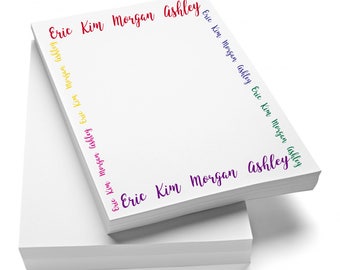 Eric Kim Morgan Ashley
Eric Kim Morgan Ashley
Eric Kim Morgan Ashley
Eric Kim Morgan Ashley
Eric Kim Morgan Ashley
Eric Kim Morgan Ashley